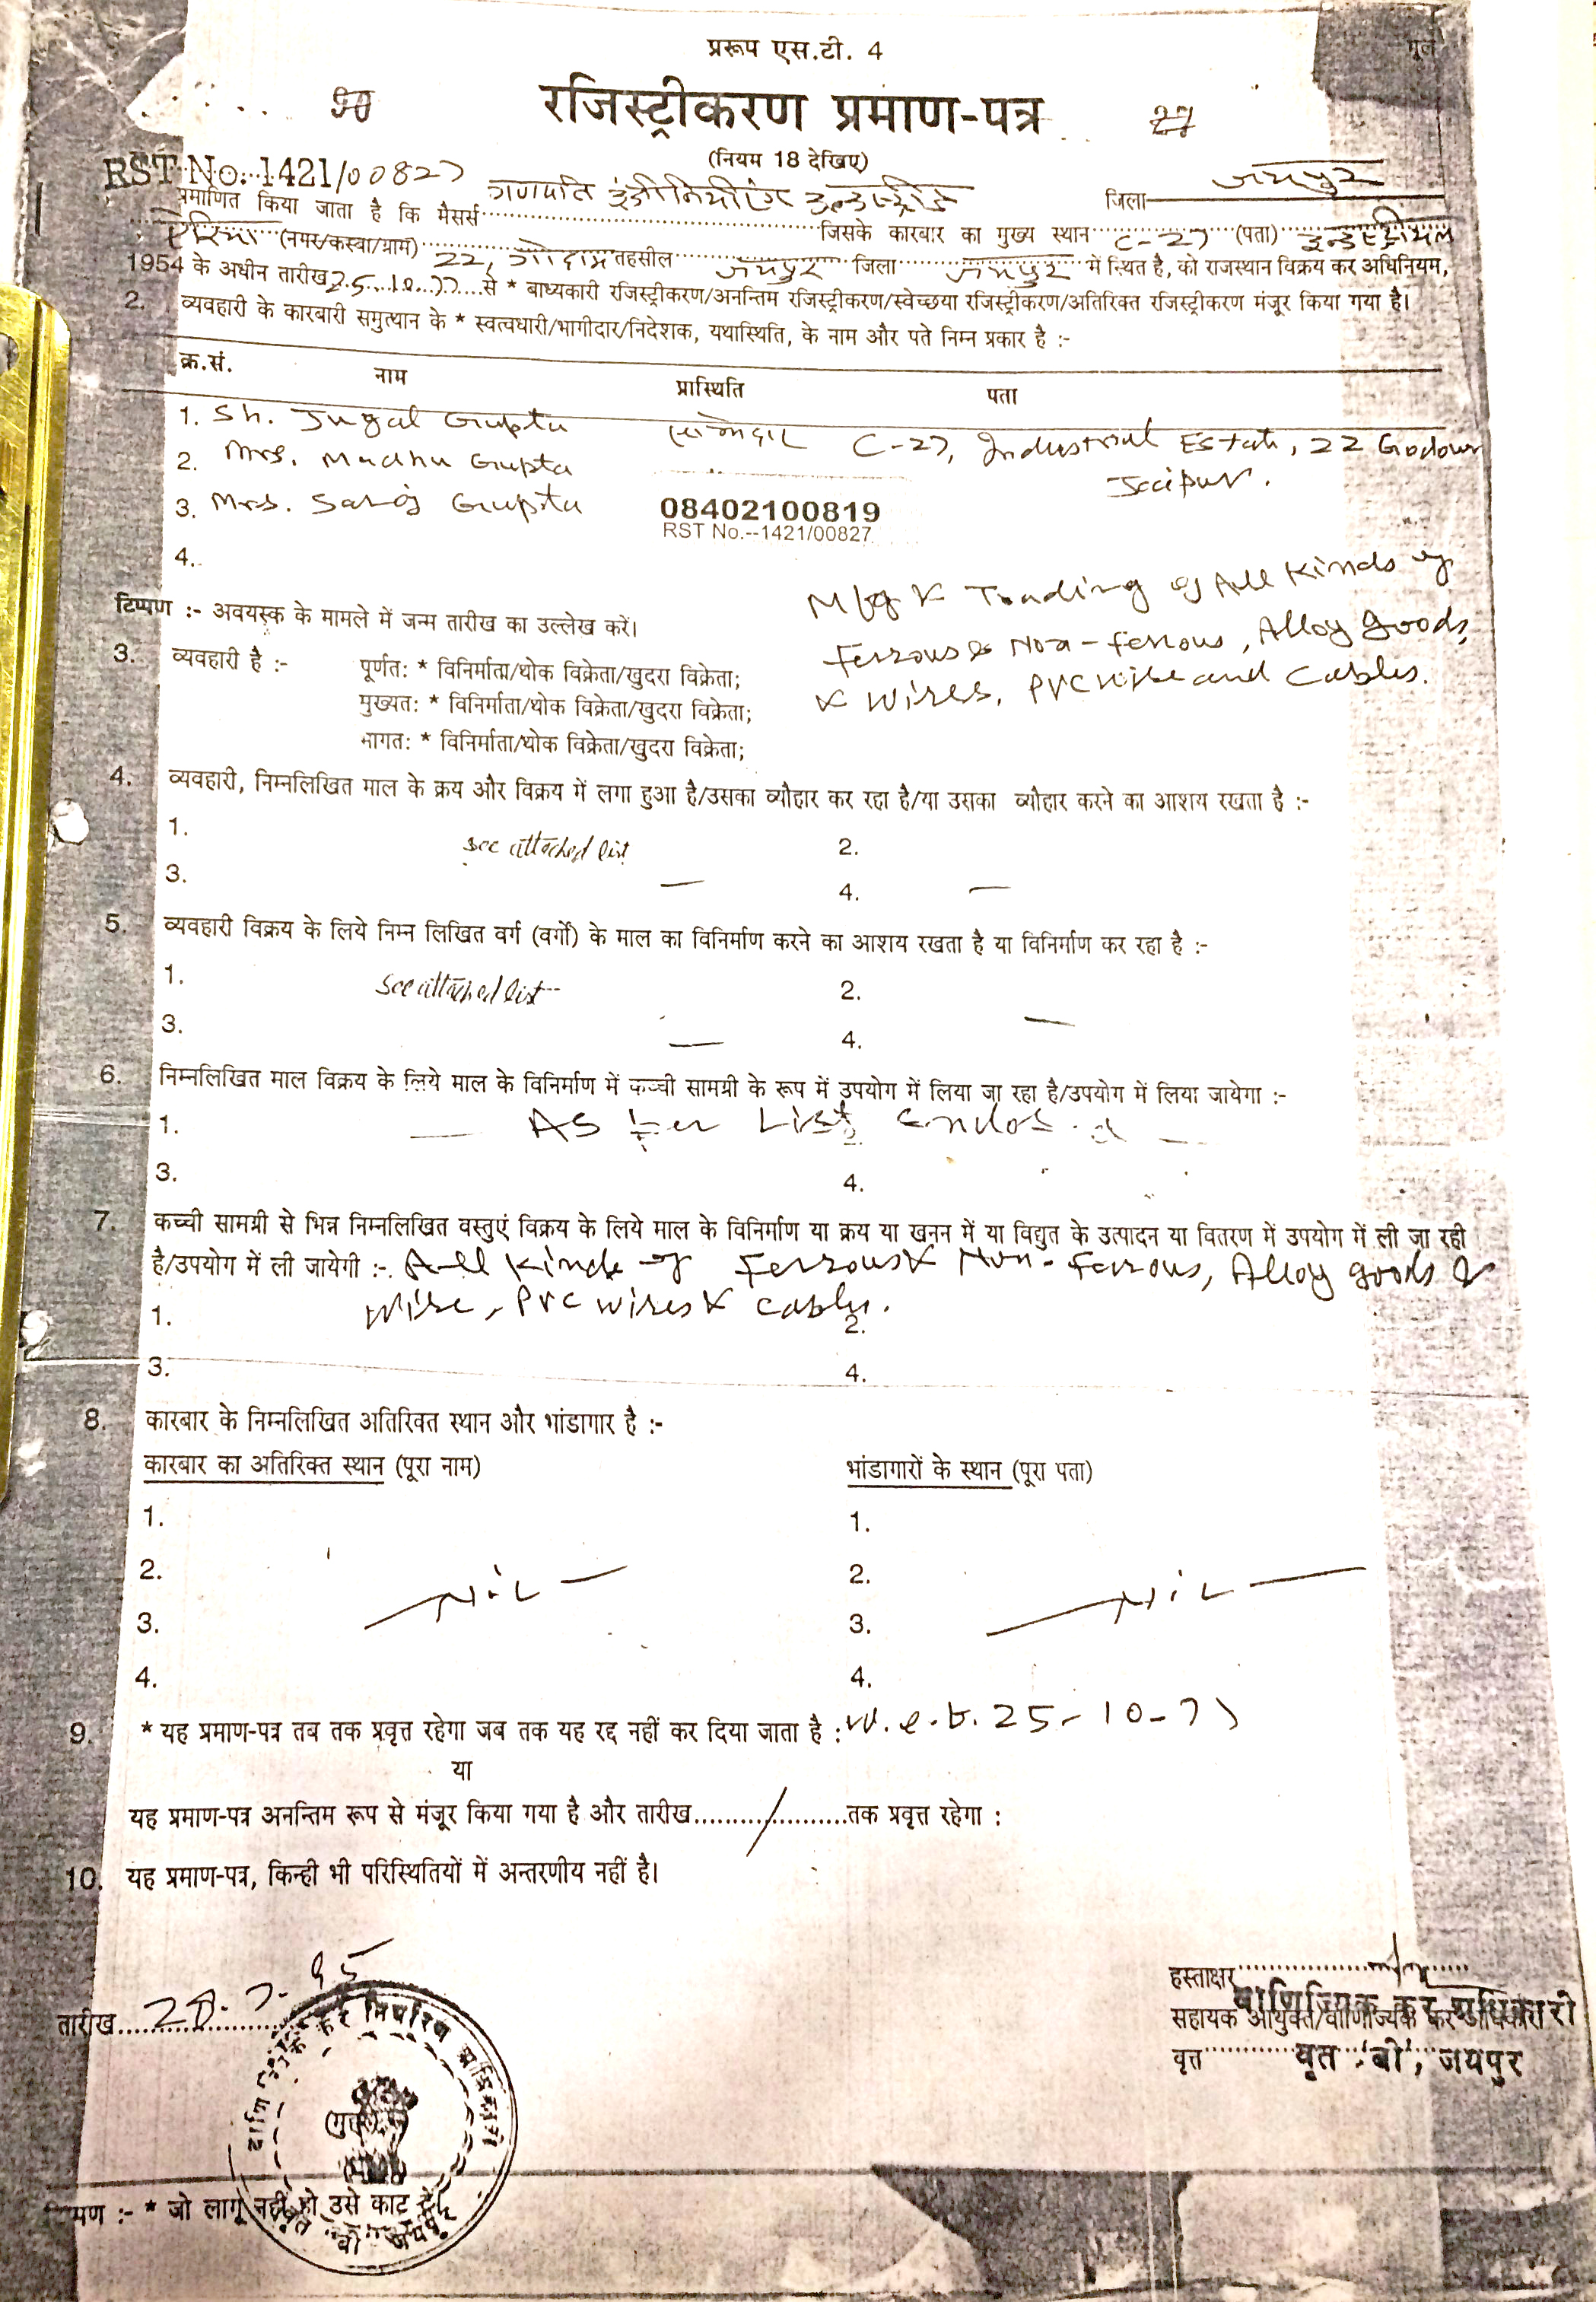 प्ररूप एस.टी. 4
मूल
रजिस्ट्रीकरण प्रमाण-पत्र
27
(नियम 18 देखिए)
RST No. 1421/00827
जिला जयपुर
प्रमाणित किया जाता है कि मैसर्स गणपति इंजीनियरिंग इन्डस्ट्रीज जिसके कारबार का मुख्य स्थान C-27 (पता) इन्डस्ट्रीयल
ऐरिया (नगर/कस्बा/ग्राम) 22, गोदाम तहसील जयपुर जिला जयपुर में स्थित है, को राजस्थान विक्रय कर अधिनियम,
1954 के अधीन तारीख 25.10.77 से * बाध्यकारी रजिस्ट्रीकरण/अनन्तिम रजिस्ट्रीकरण/स्वेच्छया रजिस्ट्रीकरण/अतिरिक्त रजिस्ट्रीकरण मंजूर किया गया है।
2. व्यवहारी के कारबारी समुत्थान के * स्वत्वधारी/भागीदार/निदेशक, यथास्थिति, के नाम और पते निम्न प्रकार है :-
क्र.सं. नाम प्रास्थिति पता
1. Sh. Jugal Gupta C-27, Industrial Estate, 22 Godown
Jaipur.
2. Mrs. Madhu Gupta
3. Mrs. Saroj Gupta
08402100819
RST No.--1421/00827
4.
टिप्पण :- अवयस्क के मामले में जन्म तारीख का उल्लेख करें।
Mfg & Trading of All Kinds of
Ferrous & Non-ferrous, Alloy goods,
& Wires, PVC wire and Cables.
3. व्यवहारी है :- पूर्णत: * विनिर्माता/थोक विक्रेता/खुदरा विक्रेता;
मुख्यत: * विनिर्माता/थोक विक्रेता/खुदरा विक्रेता;
भागत: * विनिर्माता/थोक विक्रेता/खुदरा विक्रेता;
4. व्यवहारी, निम्नलिखित माल के क्रय और विक्रय में लगा हुआ है/उसका व्यौहार कर रहा है/या उसका व्यौहार करने का आशय रखता है :-
1. see attached list 2.
3. — 4. —
5. व्यवहारी विक्रय के लिये निम्न लिखित वर्ग (वर्गों) के माल का विनिर्माण करने का आशय रखता है या विनिर्माण कर रहा है :-
1. see attached list 2.
3. — 4. —
6. निम्नलिखित माल विक्रय के लिये माल के विनिर्माण में कच्ची सामग्री के रूप में उपयोग में लिया जा रहा है/उपयोग में लिया जायेगा :-
1. — As Per List —
3. 4.
7. कच्ची सामग्री से भिन्न निम्नलिखित वस्तुएं विक्रय के लिये माल के विनिर्माण या क्रय या खनन में या विद्युत के उत्पादन या वितरण में उपयोग में ली जा रही
है/उपयोग में ली जायेगी :- All Kinds of Ferrous & Non-ferrous, Alloy goods &
1. Wire, PVC wires & cables. 2.
3. 4.
8. कारबार के निम्नलिखित अतिरिक्त स्थान और भांडागार है :-
कारबार का अतिरिक्त स्थान (पूरा नाम) भांडागारों के स्थान (पूरा पता)
1. 1.
2. 2.
— Nil — — Nil —
3. 3.
4. 4.
9. * यह प्रमाण-पत्र तब तक प्रवृत्त रहेगा जब तक यह रद्द नहीं कर दिया जाता है : w.e.f. 25-10-77
या
यह प्रमाण-पत्र अनन्तिम रूप से मंजूर किया गया है और तारीख.........../...........तक प्रवृत्त रहेगा :
10. यह प्रमाण-पत्र, किन्ही भी परिस्थितियों में अन्तरणीय नहीं है।
हस्ताक्षर
तारीख 28.7.95
वाणिज्यिक कर अधिकारी
सहायक आयुक्त/वाणिज्यिक कर अधिकारी
वृत्त वृत 'बी', जयपुर
टिप्पण :- * जो लागू नहीं हो उसे काट दें।